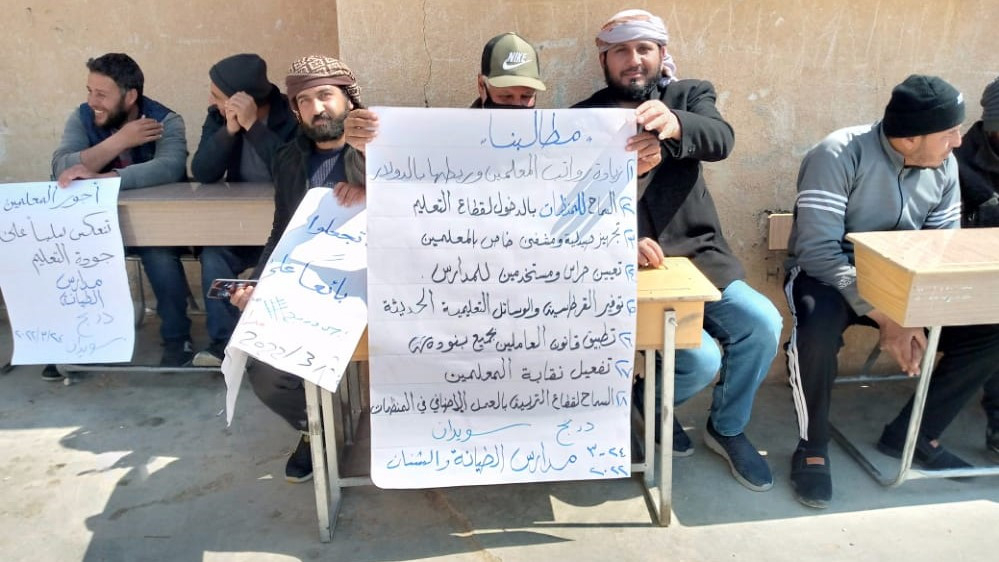 مطالبنا
١) زيادة رواتب المعلمين وربطها بالدولار
٢) السماح للمنظمات بالدخول لقطاع التعليم
٣) تجهيز صيدلية ومشفى خاص بالمعلمين
٤) تعيين حراس ومستخدمين للمدارس
٥) توفير القرطاسية والوسائل التعليمية الحديثة
٦) تطبيق قانون العاملين بجميع بنوده
٧) تفعيل نقابة المعلمين
٨) السماح لقطاع التربية بالعمل الإضافي في المنظمات
دربج سويدان
٢٤-٣ مدارس الطيانة والشنان
٢٠٢٢
أجور المعلمين
تنعكس سلباً على
جودة التعليم
مدارس
الطيانة
دربج
سويدان
تجعلوا
بائعاً على
2022/3/
NIKE